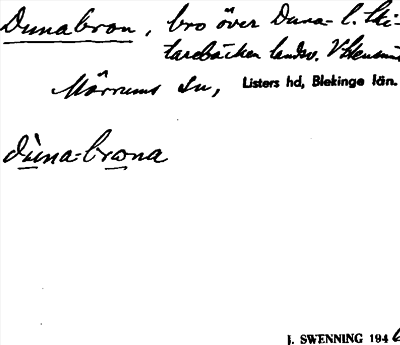 Dunabron, bro över Duna- l. Ski-
tarebäcken landsv. V
Mörrums sn, Listers hd, Blekinge län.
dùna-brøna
J. SWENNING 194